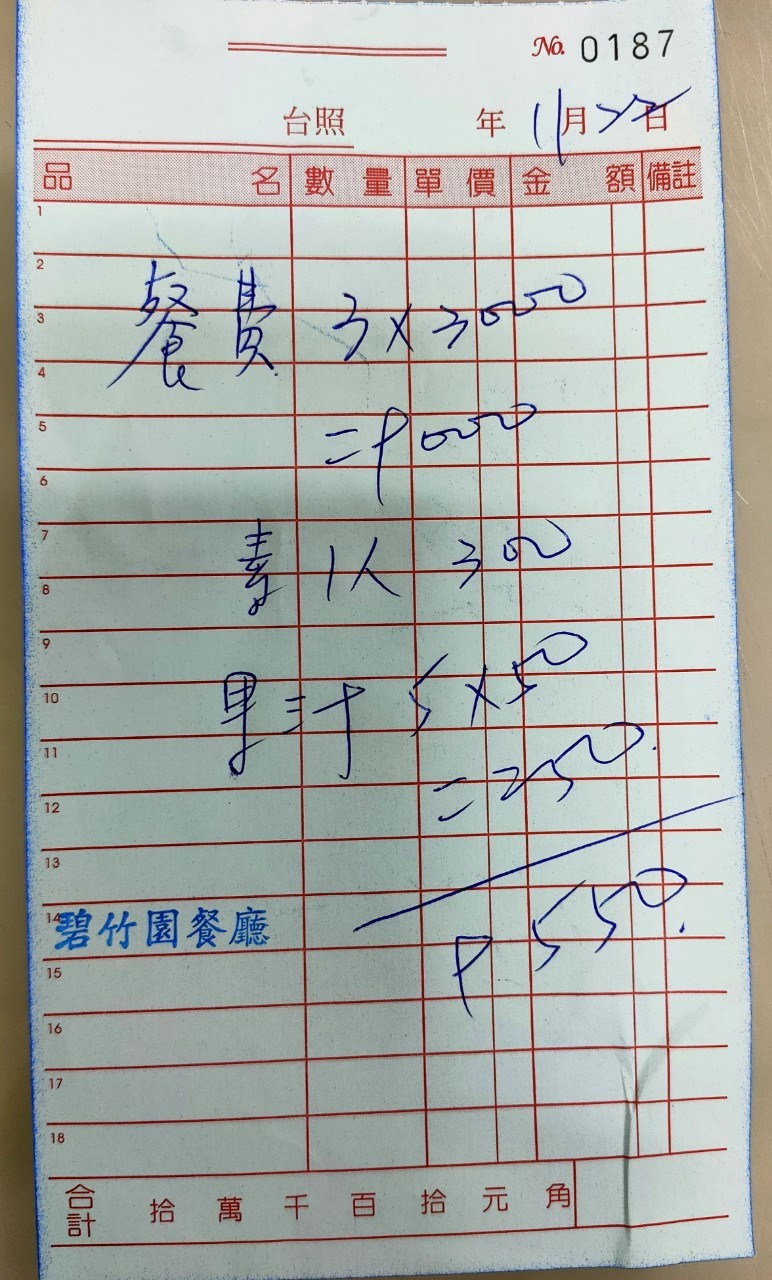 No. 0187
台照 年 11月22日
品名 數量 單價 金額 備註
1
2
餐費 3×3000
3
4
5 =9000
6
7 素 1人 300
8
9
10 果汁 5×50
11
=250.
12
13
14 碧竹園餐廳 9550.
15
16
17
18
合計 拾 萬 千 百 拾 元 角